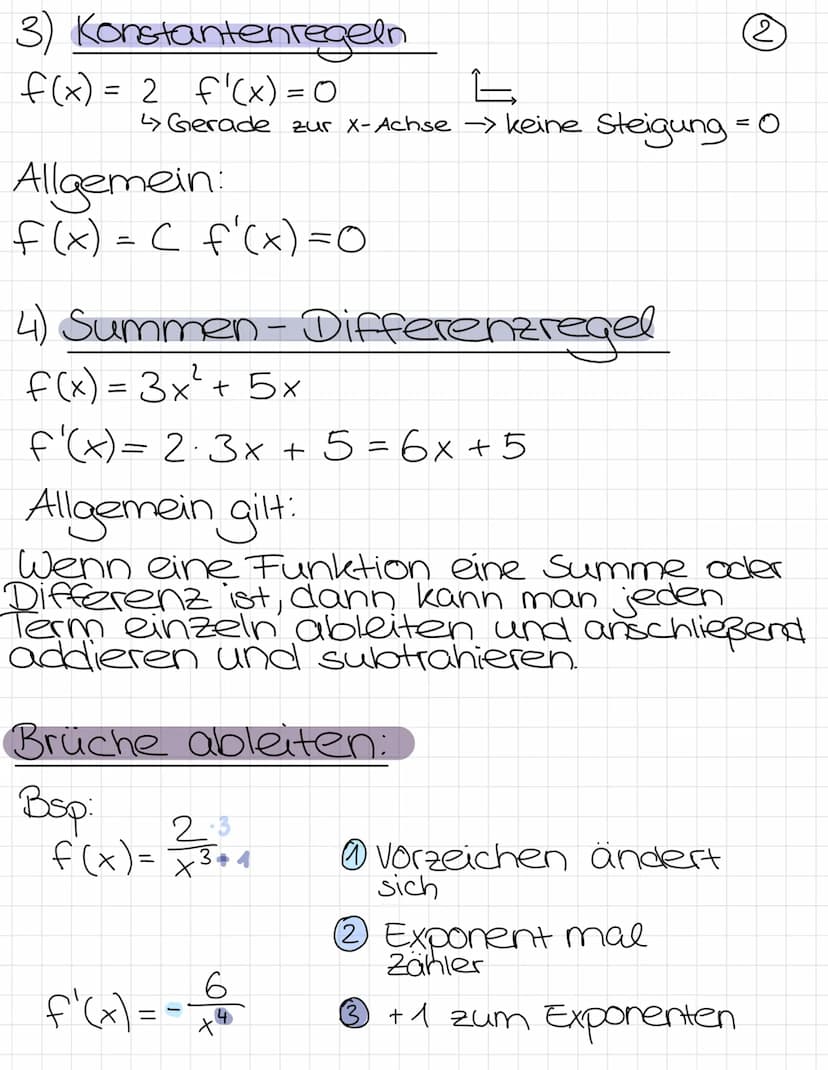 3) Konstantenregeln
2
f(x) = 2 f'(x) = 0
↳ Gerade zur x-Achse → keine Steigung = 0
Allgemein:
f(x) = C f'(x) = 0
4) Summen - Differenzregel
f(x) = 3x² + 5x
f'(x) = 2 · 3x + 5 = 6x + 5
Allgemein gilt:
Wenn eine Funktion eine Summe oder
Differenz ist, dann kann man jeden
Term einzeln ableiten und anschließend
addieren und subtrahieren.
Brüche ableiten:
Bsp:
f(x) = 2·3 / x³ + 1
① Vorzeichen ändert
sich
② Exponent mal
Zähler
f'(x) = - 6 / x⁴
③ +1 zum Exponenten